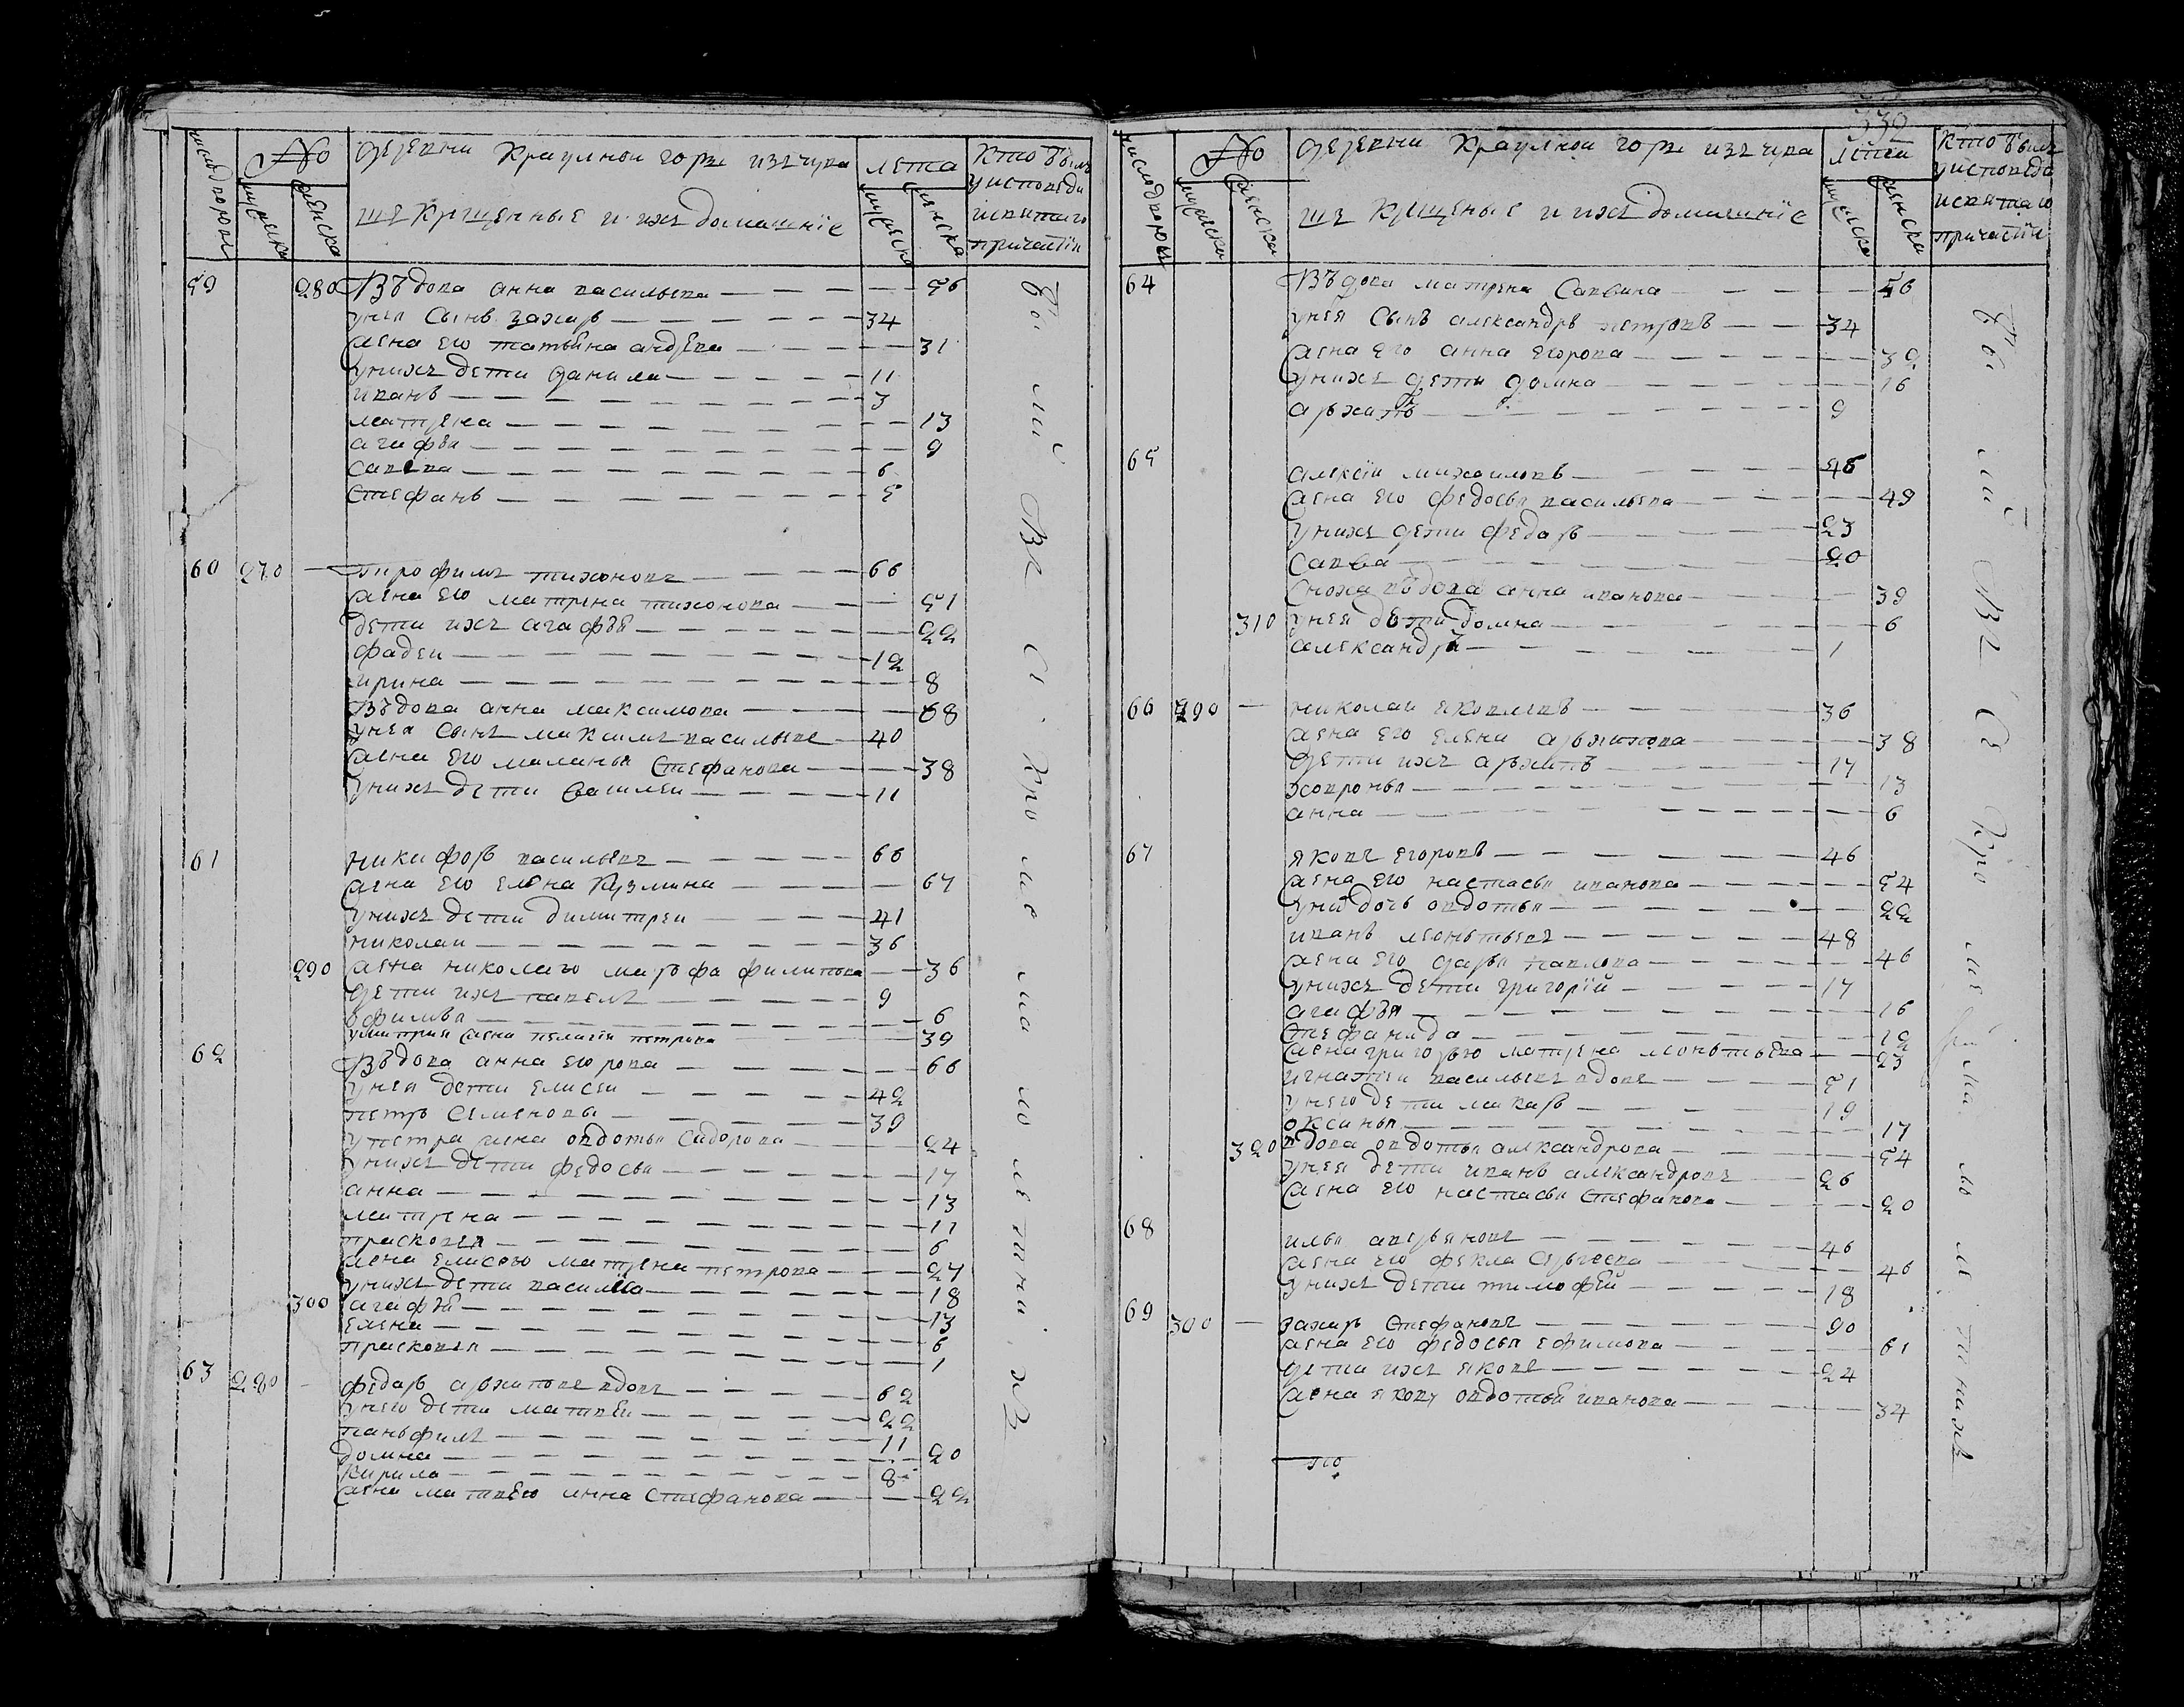 число дворовъ № деревни Краулнои горе изъ чува лета Кто былъ
мужска женска ше Крещенные и ихъ домашнïе мужска женска у исповеди и святаго причастïя
59 280 Въдова анна васильева — 56
у нея Сынъ захаръ — 34
жена его татьяна андрева — 31
у нихъ дети данила — 11
иванъ — 3
матрена — 13
агафья — 9
савела — 6
Стефанъ — 5
60 270 — трофимъ тихоновъ — 66
жена его матрена тихонова — 51
дети ихъ агафья — 22
фадеи — 12
ирина — 8
Въдова анна максимова — 68
у нея Сынъ максимъ васильевъ — 40
жена его маланья Стефанова — 38
у нихъ дети василеи — 11
61 никифоръ васильевъ — 66
жена его елена Кузмина — 67
у нихъ дети димитреи — 41
николаи — 36
290 жена николаю марфа филипова — 36
дети ихъ павелъ — 9
офимья — 6
умитрия жена пелагия петрова — 39
62 Въдова анна егорова — 66
у нея дети елисеи — 42
петръ Семеновы — 39
у петра жена овдотья Сидорова — 24
у нихъ дети федосья — 17
анна — 13
матрена — 11
прасковея — 6
жена елисею матрена петрова — 27
у нихъ дети василиса — 18
300 агафья — 13
елена — 6
прасковея — 1
63 280 федоръ архиповъ вдовъ — 62
у него дети матвеи — 22
паньфилъ — 11
домна — 20
Кирила — 8
жена матвею анна Стефанова — 22
Были Все Кроме малолетнихъ
339
число дворовъ № деревни Краулнои горе изъ чува летеи Кто былъ
мужска женска ше Крещеные и ихъ домашнïе мужска женска у исповеди и святаго причастïя
64 Въдова матрена Савина — 56
у нея Сынъ александръ петровъ — 34
жена его анна егорова — 39
у нихъ дети домна — 16
архипъ — 9
65 алексïи михаиловъ — 46
жена его федосья васильева — 49
у нихъ дети федоръ — 23
Сава — 20
Сноха въдова анна иванова — 39
310 у нея дети домна — 6
александръ — 1
66 290 — николаи яковлевъ — 36
жена его елена архипова — 38
дети ихъ архипъ — 17
хавронья — 13
анна — 6
67 яковъ егоровъ — 46
жена его настасья иванова — 54
у них дочь овдотья — 22
иванъ леонтьевъ — 48
жена его дарья павлова — 46
у нихъ дети григорïй — 17
агафья — 16
Стефанида — 12
жена григорью матрена леонтьева — 23
игнатеи васильевъ вдовъ — 51
у него дети макаръ — 19
оксинья — 17
320 вдова овдотья александрова — 54
у нея дети иванъ александровъ — 26
жена его настасья Стефанова — 20
68 илья аверьяновъ — 46
жена его фекла Сергеева — 46
у нихъ дети тимофей — 18
69 300 — захаръ Стефановъ — 90
жена его федосья ефимова — 61
дети ихъ яковъ — 24
жена якову овдотья иванова — 34
Были Все Кроме малолетнихъ